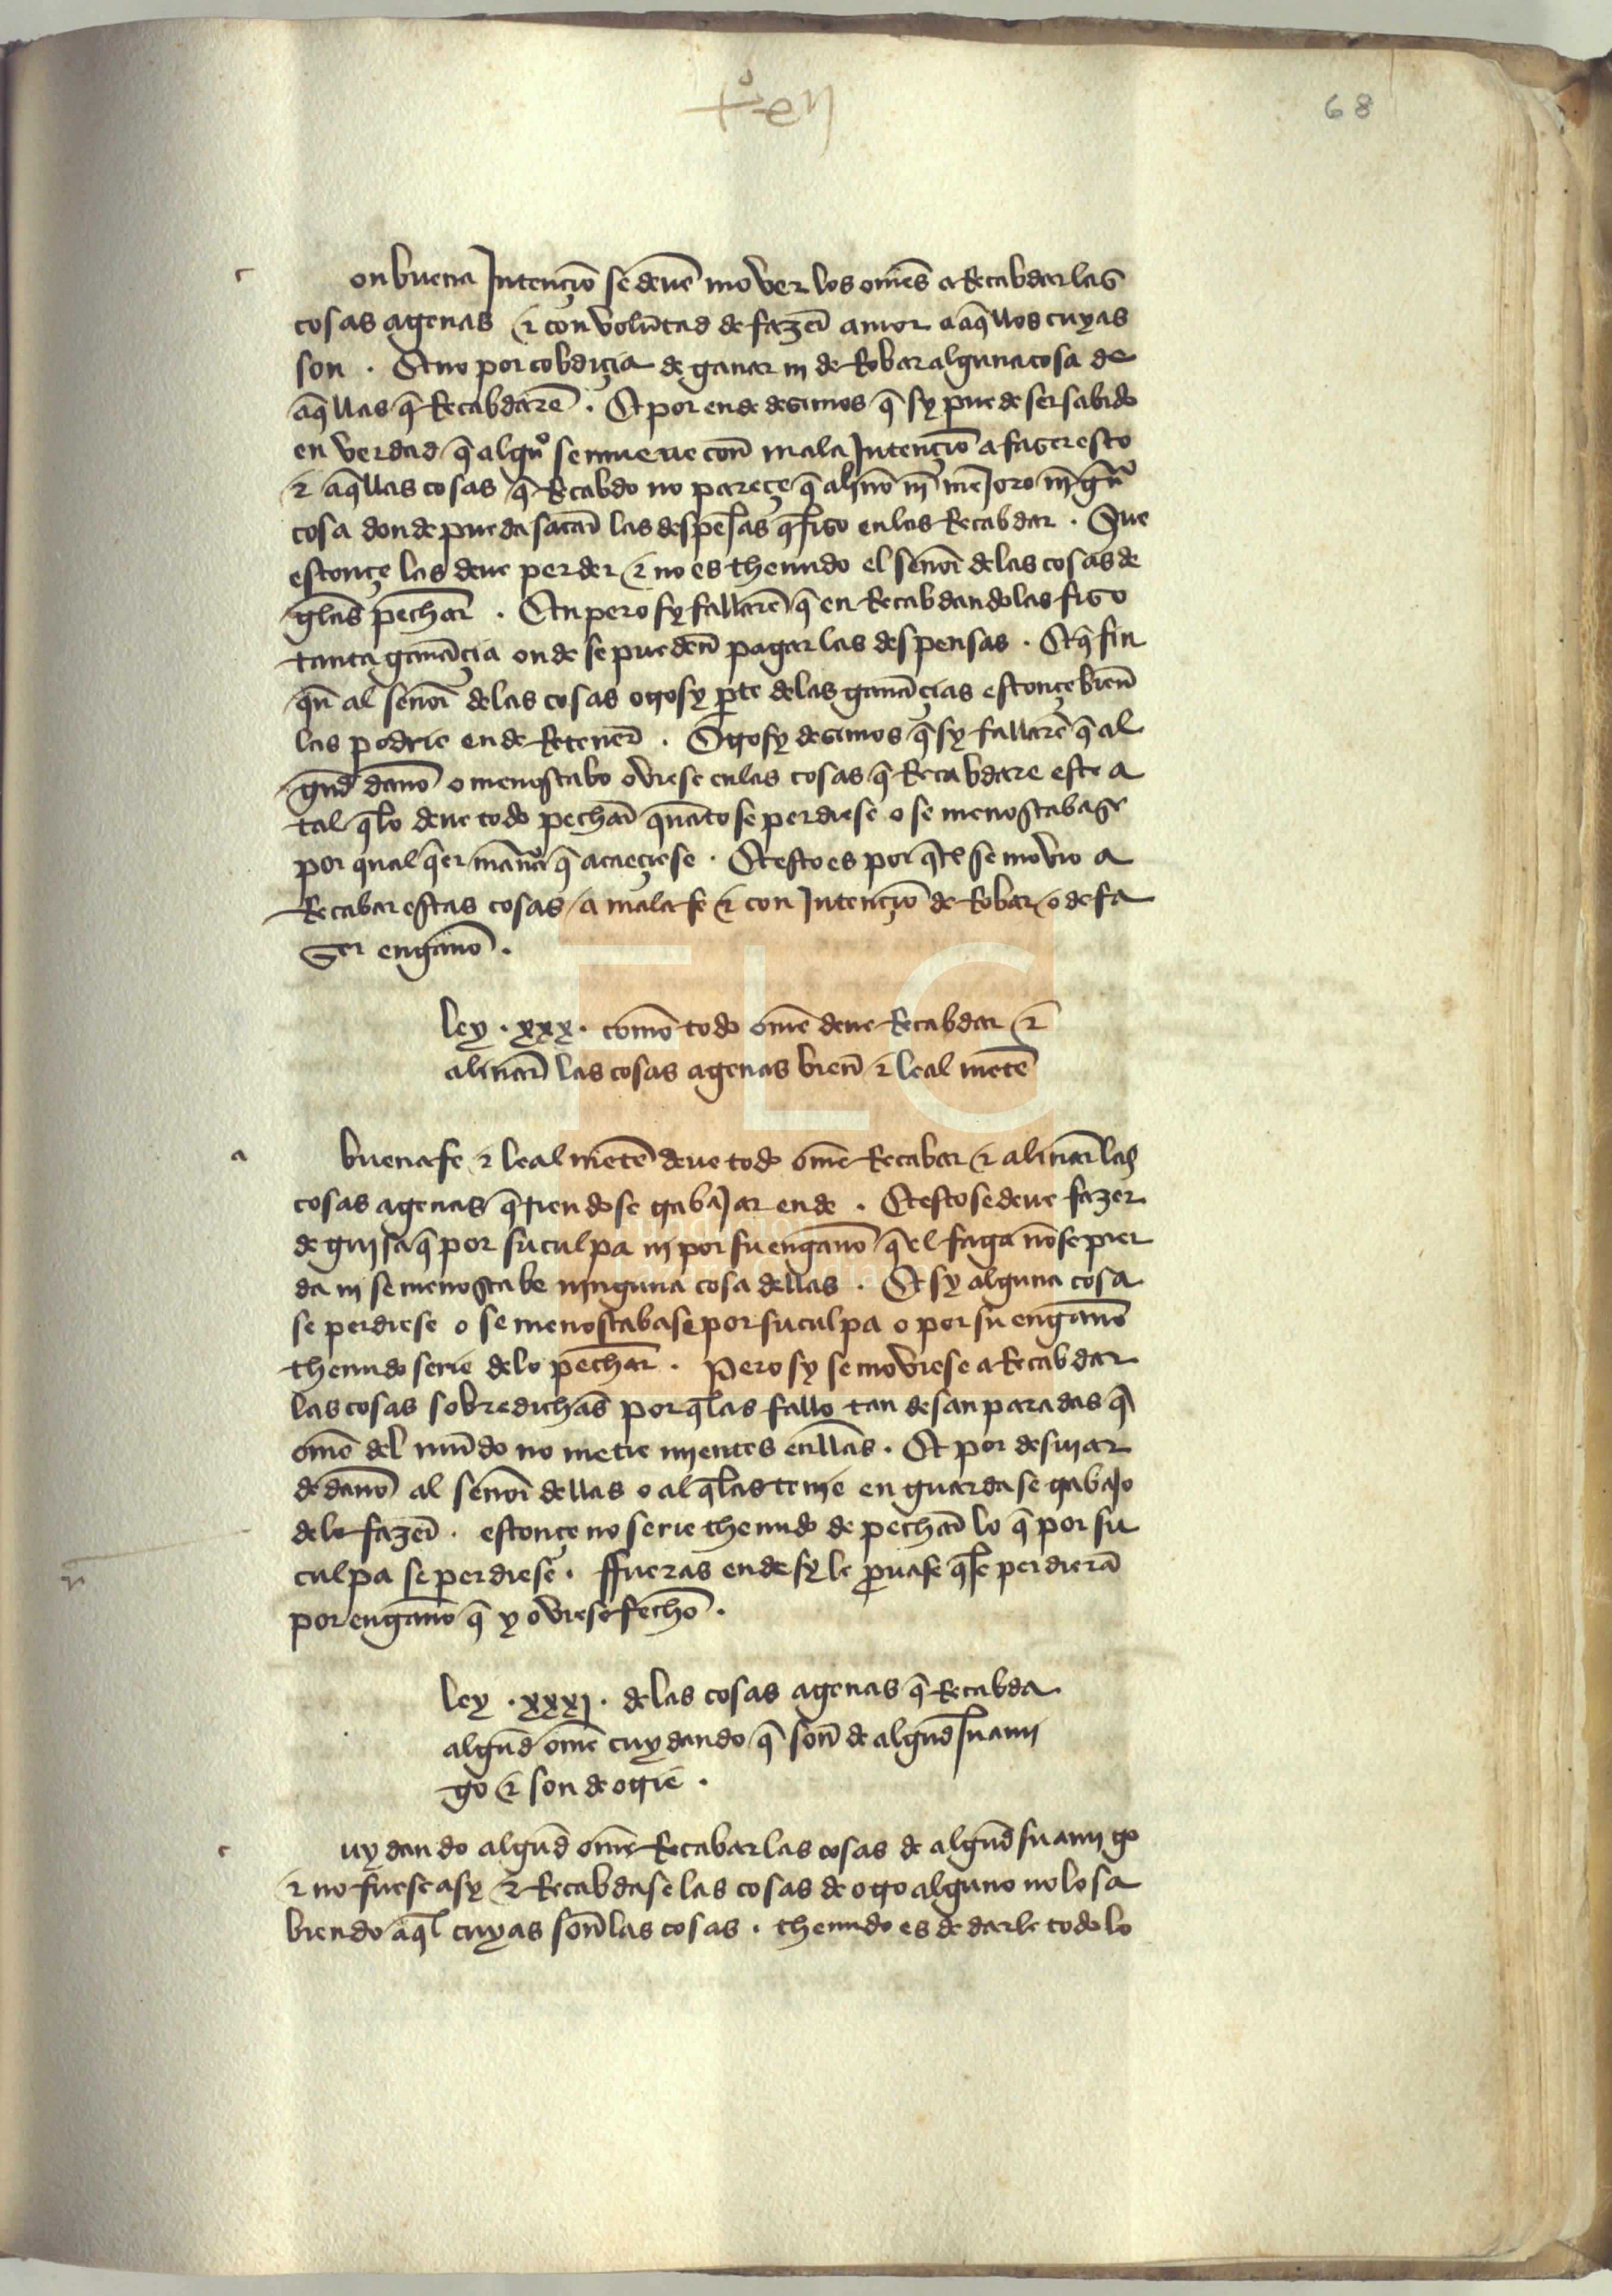 68
c
on buena Jntençiō se deuē mover los omēs a Recabdar las
cosas agenas & con volūtad de fazer̄ amor a aq̄llos cuyas
son . Et no por cobdiçia de ganar nj de Robar alguna cosa de
aq̄llas q̄ Recabdarē . Et por ende desimos q̄ sy puede ser sabido
en verdad q̄ algūo se mueue con̄ mala Jntençiō a faser esto
& aq̄llas cosas q̄ Recabdo no pareçe q̄ aliño nj̄ mēJoro nj̄gūa
cosa donde pueda sacar̄ las despēsas q̄ fiso en las Recabdar . Que
estonçe las deue perder & no es thenudo el señor̄ de las cosas de
gelas pechar̄ . En pero sy fallarē q̄ en Recabdandolas fiso
tanta ganāçia onde se pueden̄ pagar las despensas . Et q̄ fin
quē al señor̄ de las cosas otrosy pārte de las ganāçias estonçe bien̄
las podrie ende Retener̄ . Otrosy desimos q̄ sy fallarē q̄ al
gūd daño o menoscabo oviese en las cosas q̄ Recabdare este a
tal q̄ lo deue todo pechar̄ quāto se perdiese o se menoscabase
por qual q̄er man̄a q̄ acaeçiese . Et esto es por q̄ el se movio a
Recabar estas cosas a mala fe & con Jntençiō de Robar o de fa
ser engaño .
ley . xxx . como todo omē deue Recabdar &
aliñar̄ las cosas agenas bien̄ & leal mētē
a
buena fe & leal mētē deue todo omē Recabar & aliñar̄ las
cosas agenas q̄riendo se trabaJar ende . Et esto se deue fazer
de gujsa q̄ por su culpa nj por su engaño q̄ el faga nō se pier
da nj se menoscabe njnguna cosa dellas . Et sy alguna cosa
se perdiese o se menoscabase por su culpa o por su engaño
thenudo serie de lo pechar̄ . Pero sy se moviese a Recabdar
las cosas sobredichas por q̄ las fallo tan desanparadas q̄
omē del mūdo no metie mjentes en̄llas . Et por desujar
de daño al señor̄ dellas o al q̄ las tenje en guarda se trabaJo
de lo fazer̄ . estonçe no serie thenudo de pechar̄ lo q̄ por su
culpa se perdiese . ffueras ende sy le prouase q̄ se perdierā
por engaño q̄ y oviese fecho .
ley . xxxj . de las cosas agenas q̄ Recabda
algūd omē cuydando q̄ son̄ de algūd su amj
go & son de otrie .
c
uydando algūd omē Recabar las cosas de algūd su amjgo
& no fuese asy & Recabdase las cosas de otro alguno no lo sa
biendo aq̄l cuyas son̄ las cosas . thenudo es de darle todo lo